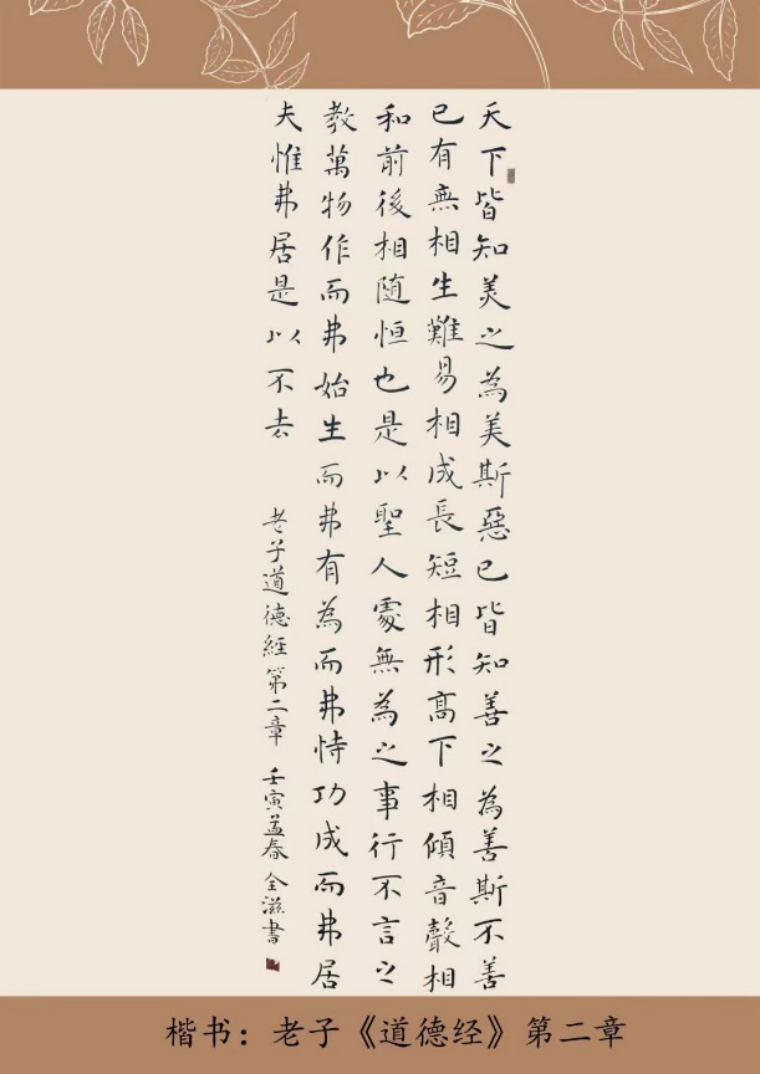 天下皆知美之為美斯惡已皆知善之為善斯不善
已有無相生難易相成長短相形高下相傾音聲相
和前後相隨恒也是以聖人處無為之事行不言之
教萬物作而弗始生而弗有為而弗恃功成而弗居
夫惟弗居是以不去
老子道德經第二章 壬寅孟春 全滋書
楷书：老子《道德经》第二章